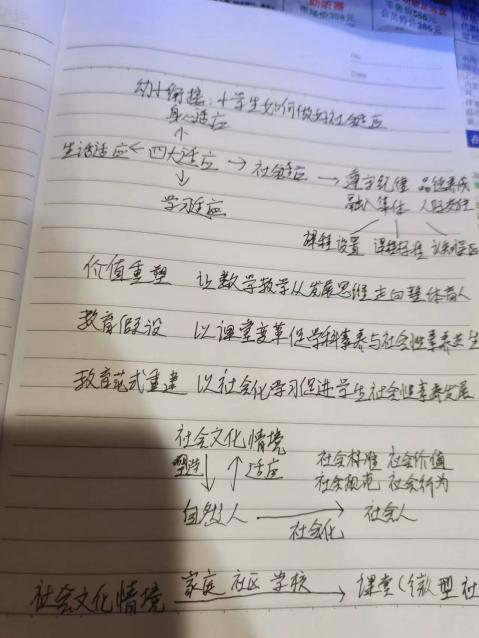 助听器
市场价358元
零售价586元
会员特价386元
No
Date
幼小衔接:小学生如何做好社会适应
身心适应
↑
生活适应 ← 四大适应 → 社会适应 → 遵守纪律 品德养成
↓ 融入集体 人际交往
学习适应
课程设置 课程标准
价值重塑 让数学教学从发展思维走向整体育人
教育假设 以课堂变革促学科素养与社会性素养共生
教育范式重建 以社会化学习促进学生社会性素养发展
社会文化情境
塑造 ↓ ↑ 适应 社会标准 社会价值
社会规范 社会行为
自然人 → 社会人
社会化
社会文化情境 家庭 社区 学校 → 课堂(微型社